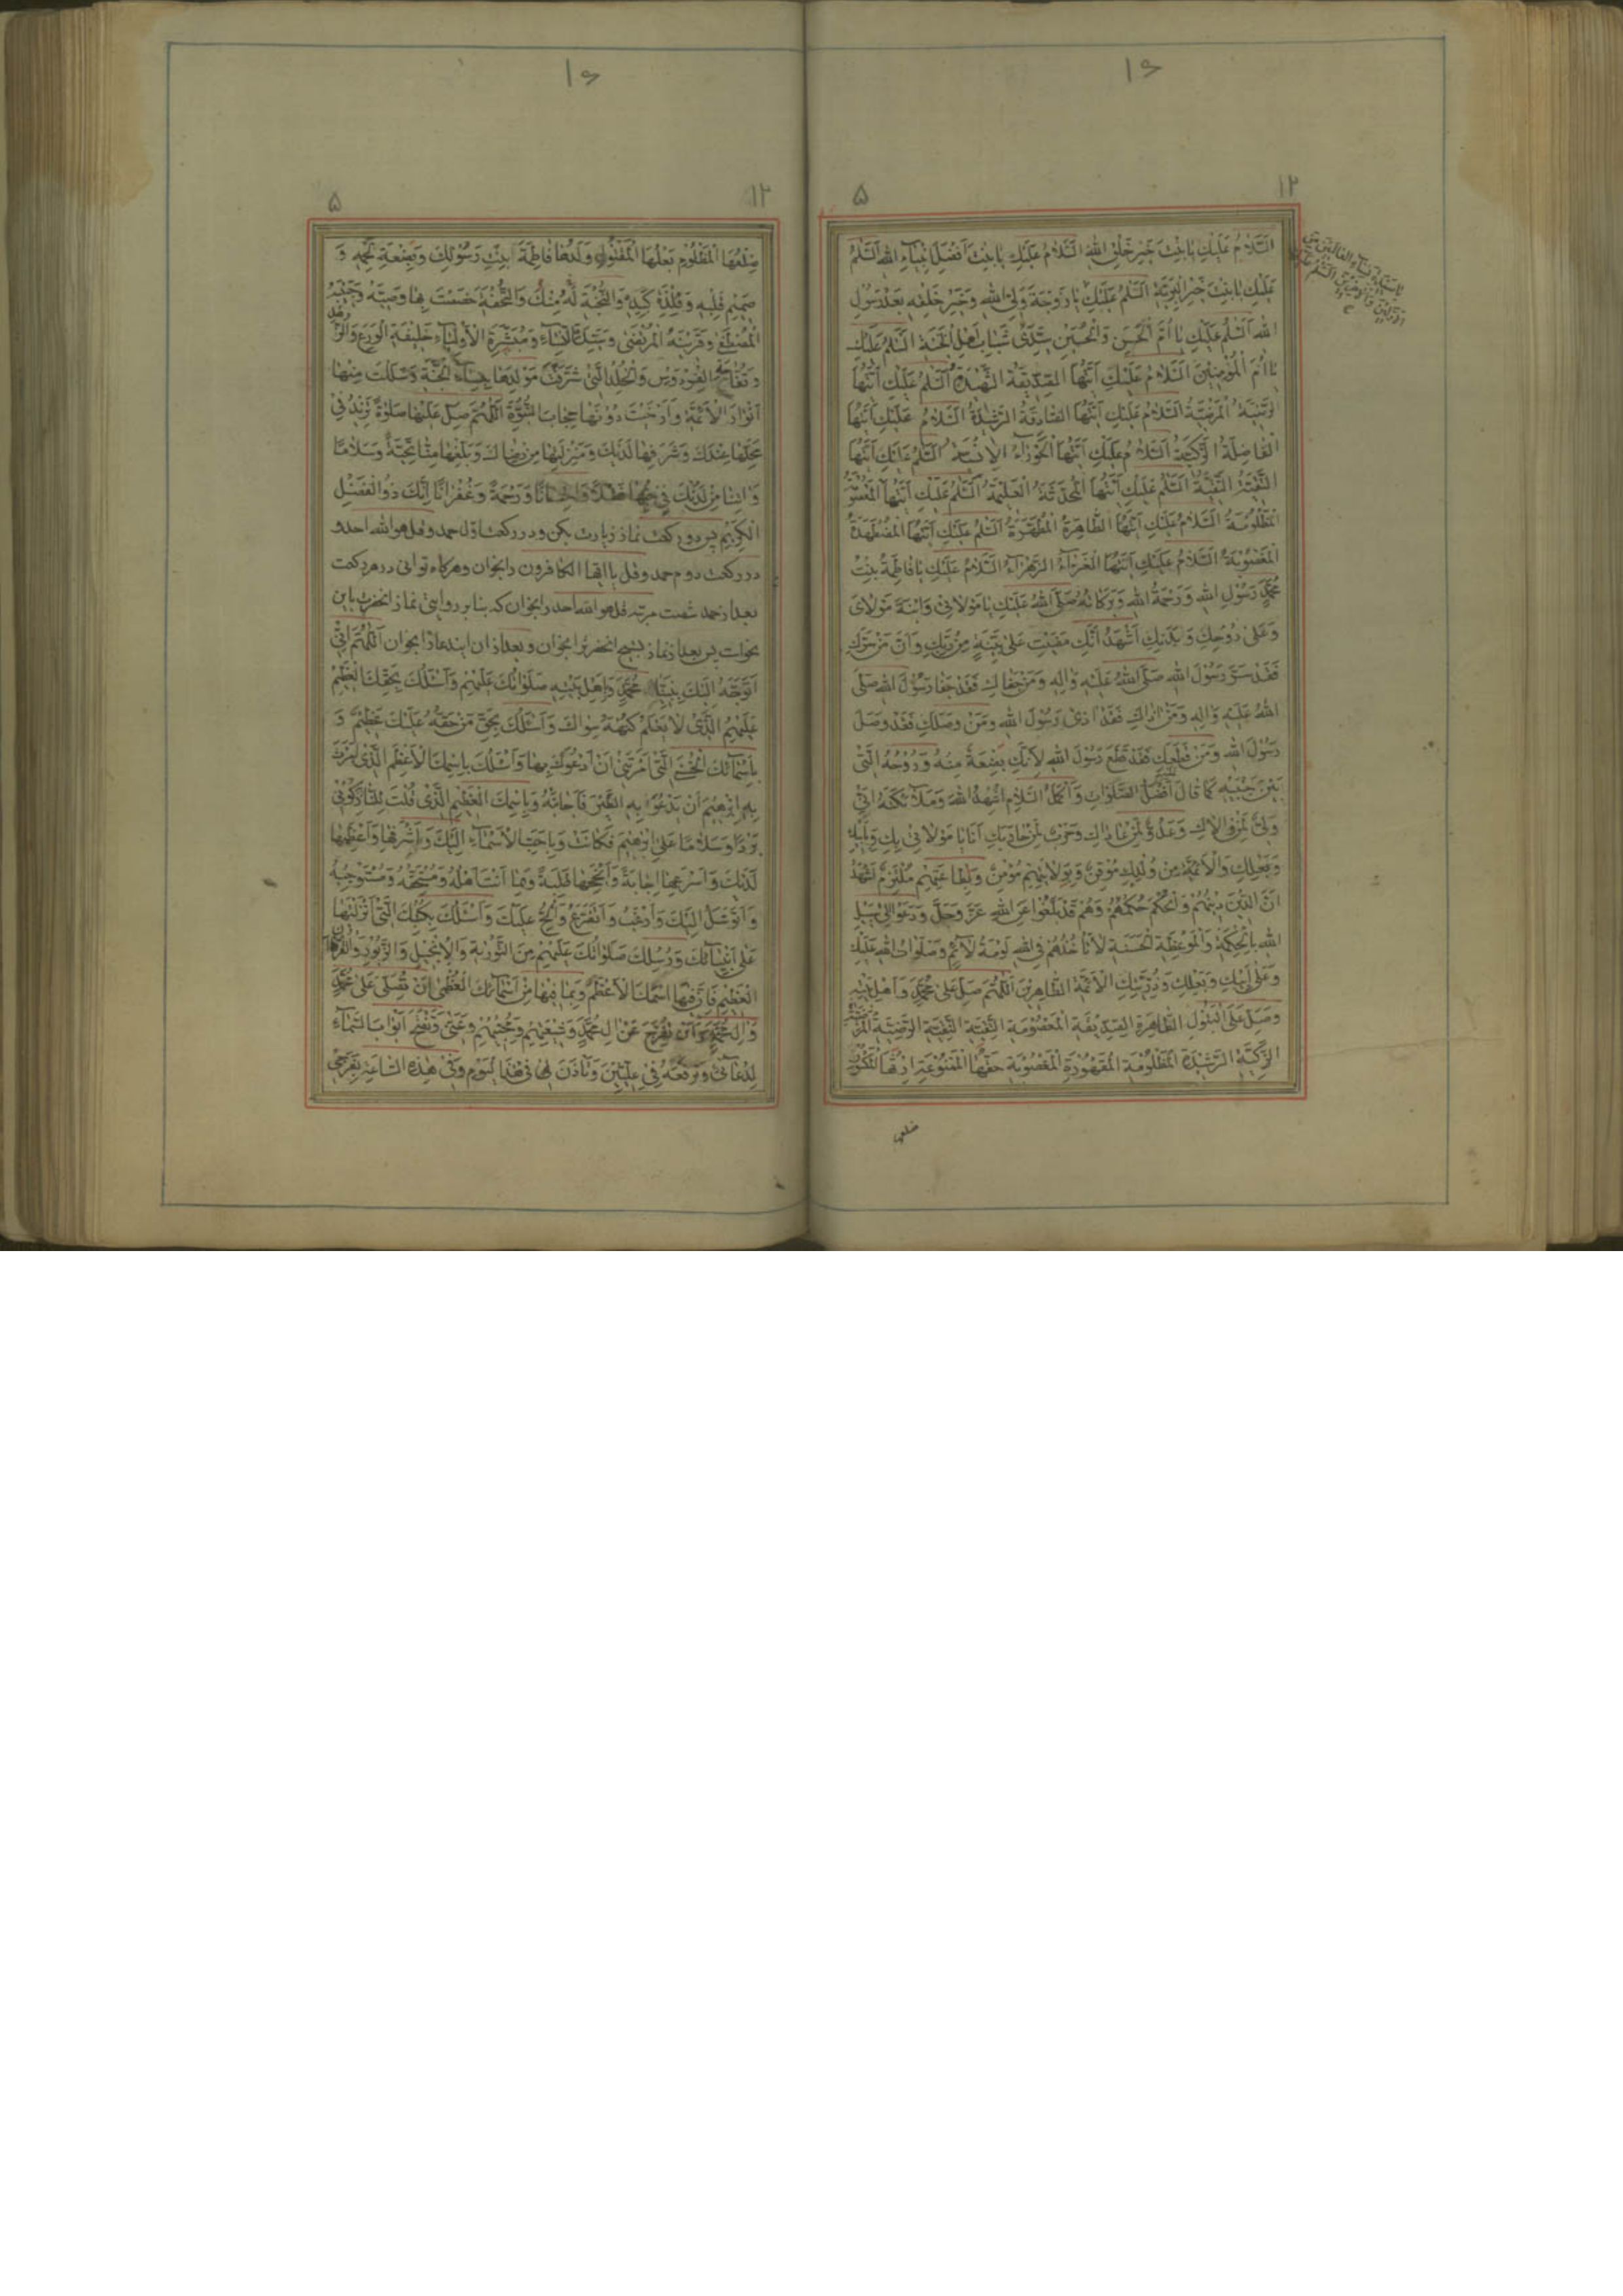 ۱۶
۱۲
۵
السَّلامُ عَلَيْكِ يا بِنْتَ خَيْرِ خَلْقِ اللهِ السَّلامُ عَلَيْكِ يا بِنْتَ اَفْضَلِ اَنْبِياءِ اللهِ اَلسَّلمُ
عَلَيْكِ يا بِنْتَ خَيْرِ الْبَرِيَّةِ اَلسَّلمُ عَلَيْكِ يا زَوْجَةَ وَلِيِّ اللهِ وَخَيْرِ خَلْقِهِ بَعْدَ رَسُولِ
اللهِ اَلسَّلمُ عَلَيْكِ يا اُمَّ الْحَسَنِ وَالْحُسَيْنِ سَيِّدَيْ شَبابِ اَهْلِ الْجَنَّةِ السَّلمُ عَلَيْكِ
يا اُمَّ الْمُؤْمِنينَ السَّلامُ عَلَيْكِ اَيَّتُهَا الصِّدّيقَةُ الشَّهيدَةُ اَلسَّلمُ عَلَيْكِ اَيَّتُهَا
الرَّضِيَّةُ الْمَرْضِيَّةُ السَّلامُ عَلَيْكِ اَيَّتُهَا الصّادِقَةُ الرَّشيدَةُ السَّلامُ عَلَيْكِ اَيَّتُهَا
الْفاضِلَةُ الزَّكِيَّةُ اَلسَّلامُ عَلَيْكِ اَيَّتُهَا الْحَوْراءُ الْاِنْسِيَّةُ اَلسَّلمُ عَلَيْكِ اَيَّتُهَا
التَّقِيَّةُ النَّقِيَّةُ اَلسَّلمُ عَلَيْكِ اَيَّتُهَا الْمُحَدَّثَةُ الْعَليمَةُ اَلسَّلمُ عَلَيْكِ اَيَّتُهَا الْمَعْصُومَةُ
الْمَظْلُومَةُ السَّلامُ عَلَيْكِ اَيَّتُهَا الطّاهِرَةُ الْمُطَهَّرَةُ اَلسَّلمُ عَلَيْكِ اَيَّتُهَا الْمُضْطَهَدَةُ
الْمَغْصُوبَةُ السَّلامُ عَلَيْكِ اَيَّتُهَا الْغَرّاءُ الزَّهْراءُ السَّلامُ عَلَيْكِ يا فاطِمَةُ بِنْتَ
مُحَمَّدٍ رَسُولِ اللهِ وَرَحْمَةُ اللهِ وَبَرَكاتُهُ صَلَّى اللهُ عَلَيْكِ يا مَوْلاتي وَابْنَةَ مَوْلايَ
وَعَلى رُوحِكِ وَبَدَنِكِ اَشْهَدُ اَنَّكِ مَضَيْتِ عَلى بَيِّنَةٍ مِنْ رَبِّكِ وَاَنَّ مَنْ سَرَّكِ
فَقَدْ سَرَّ رَسُولَ اللهِ صَلَّى اللهُ عَلَيْهِ وَالِهِ وَمَنْ جَفاكِ فَقَدْ جَفا رَسُولَ اللهِ صَلَّى
اللهُ عَلَيْهِ وَالِهِ وَمَنْ اذاكِ فَقَدْ اذى رَسُولَ اللهِ وَمَنْ وَصَلَكِ فَقَدْ وَصَلَ
رَسُولَ اللهِ وَمَنْ قَطَعَكِ فَقَدْ قَطَعَ رَسُولَ اللهِ لِاَنَّكِ بِضْعَةٌ مِنْهُ وَرُوحُهُ الَّتي
بَيْنَ جَنْبَيْهِ كَما قالَ اَفْضَلُ الصَّلَواتِ وَاَكْمَلُ السَّلامِ اُشْهِدُ اللهَ وَمَلائِكَتَهُ اَنّي
وَلِيٌّ لِمَنْ والاكِ وَعَدُوٌّ لِمَنْ عاداكِ وَحَرْبٌ لِمَنْ حارَبَكِ اَنَا يا مَوْلاتي بِكِ وَبِاَبيكِ
وَبَعْلِكِ وَالْاَئِمَّةِ مِنْ وُلْدِكِ مُوقِنٌ وَبِوِلايَتِهِمْ مُؤْمِنٌ وَلِطاعَتِهِمْ مُلْتَزِمٌ اَشْهَدُ
اَنَّ الدّينَ دينُهُمْ وَالْحُكْمَ حُكْمُهُمْ وَهُمْ قَدْ بَلَّغُوا عَنِ اللهِ عَزَّ وَجَلَّ وَدَعَوْا اِلى سَبيلِ
اللهِ بِالْحِكْمَةِ وَالْمَوْعِظَةِ الْحَسَنَةِ لا تَأْخُذُهُمْ فِي اللهِ لَوْمَةُ لائِمٍ وَصَلَواتُ اللهِ عَلَيْكِ
وَعَلى اَبيكِ وَبَعْلِكِ وَذُرِّيَّتِكِ الْاَئِمَّةِ الطّاهِرينَ اَللّهُمَّ صَلِّ عَلى مُحَمَّدٍ وَاَهْلِ بَيْتِهِ
وَصَلِّ عَلَى الْبَتُولِ الطّاهِرَةِ الصِّدّيقَةِ الْمَعْصُومَةِ التَّقِيَّةِ النَّقِيَّةِ الرَّضِيَّةِ الْمَرْضِيَّةِ
الزَّكِيَّةِ الرَّشيدَةِ الْمَظْلُومَةِ الْمَقْهُورَةِ الْمَغْصُوبَةِ حَقُّهَا الْمَمْنُوعَةِ اِرْثُهَا الْمَكْسُورِ
ضلعها
۱۶
۱۲
۵
ضِلْعُهَا الْمَظْلُومِ بَعْلُهَا الْمَقْتُولِ وَلَدُها فاطِمَةَ بِنْتِ رَسُولِكَ وَبَضْعَةِ لَحْمِهِ وَ
صَميمِ قَلْبِهِ وَفِلْذَةِ كَبِدِهِ وَالنُّخْبَةِ لَهُ مِنْكَ وَالتُّحْفَةِ خَصَصْتَ بِها وَصِيَّهُ وَحَبيبِهِ
الْمُصْطَفى وَقَرينَهُ الْمُرْتَضى وَسَيِّدَةِ النِّساءِ وَمُبَشِّرَةِ الْاَوْلِياءِ حَليفَةِ الْوَرَعِ وَالزُّهْدِ
وَتُفّاحَةِ الْفِرْدَوْسِ وَالْخُلْدِ الَّتي شَرَّفْتَ مَوْلِدَها بِنِساءِ الْجَنَّةِ وَسَلَلْتَ مِنْها
اَنْوارَ الْاَئِمَّةِ وَاَرْخَيْتَ دُونَها حِجابَ النُّبُوَّةِ اَللّهُمَّ صَلِّ عَلَيْها صَلوةً تَزيدُ في
مَحَلِّها عِنْدَكَ وَشَرَفِها لَدَيْكَ وَمَنْزِلَتِها مِنْ رِضاكَ وَبَلِّغْها مِنّا تَحِيَّةً وَسَلامًا
وَاتِنا مِنْ لَدُنْكَ في حُبِّها فَضْلاً وَاِحْسانًا وَرَحْمَةً وَغُفْرانًا اِنَّكَ ذُو الْفَضْلِ
الْكَريمِ پس دو ركعت نماز زيارت بكن و در ركعت اوّل حمد و قل هو الله احد و
در ركعت دوم حمد و قل يا ايها الكافرون را بخوان و هرگاه توانى در هر ركعت
بعد از حمد شصت مرتبه قل هو الله احد را بخوان كه بنا بر روايتى نماز انحضرت باين
نحو است پس بعد از نماز تسبيح انحضرت را بخوان و بعد از ان ايندعا را بخوان اَللّهُمَّ اِنّي
اَتَوَجَّهُ اِلَيْكَ بِنَبِيِّنا مُحَمَّدٍ وَاَهْلِ بَيْتِهِ صَلَواتُكَ عَلَيْهِمْ وَاَسْئَلُكَ بِحَقِّكَ الْعَظيمِ
عَلَيْهِمُ الَّذي لا يَعْلَمُ كُنْهَهُ سِواكَ وَاَسْئَلُكَ بِحَقِّ مَنْ حَقُّهُ عَلَيْكَ عَظيمٌ وَ
بِاَسْمائِكَ الْحُسْنَى الَّتي اَمَرْتَني اَنْ اَدْعُوَكَ بِها وَاَسْئَلُكَ بِاسْمِكَ الْاَعْظَمِ الَّذي اَمَرْتَ
بِهِ اِبْرهيمَ اَنْ يَدْعُوَ بِهِ الطَّيْرَ فَاَجابَتْهُ وَبِاسْمِكَ الْعَظيمِ الَّذي قُلْتَ لِلنّارِ كُوني
بَرْدًا وَسَلامًا عَلى اِبْرهيمَ فَكانَتْ وَبِاَحَبِّ الْاَسْماءِ اِلَيْكَ وَاَشْرَفِها وَاَعْظَمِها
لَدَيْكَ وَاَسْرَعِها اِجابَةً وَاَنْجَحِها طَلِبَةً وَبِما اَنْتَ اَهْلُهُ وَمُسْتَحِقُّهُ وَمُسْتَوْجِبُهُ
وَاَتَوَسَّلُ اِلَيْكَ وَاَرْغَبُ وَاَتَضَرَّعُ وَاُلِحُّ عَلَيْكَ وَاَسْئَلُكَ بِكُتُبِكَ الَّتي اَنْزَلْتَها
عَلى اَنْبِيائِكَ وَرُسُلِكَ صَلَواتُكَ عَلَيْهِمْ مِنَ التَّوْريةِ وَالْاِنْجيلِ وَالزَّبُورِ وَالْقُرْانِ
الْعَظيمِ فَاِنَّ فيهَا اسْمَكَ الْاَعْظَمَ وَبِما فيها مِنْ اَسْمائِكَ الْعُظْمى اَنْ تُصَلِّيَ عَلى مُحَمَّدٍ
وَالِ مُحَمَّدٍ وَاَنْ تُفَرِّجَ عَنْ الِ مُحَمَّدٍ وَشيعَتِهِمْ وَمُحِبّيهِمْ وَعَنّي وَتَفْتَحَ اَبْوابَ السَّماءِ
لِدُعائي وَتَرْفَعَهُ في عِلِّيّينَ وَتَأْذَنَ لي في هذَا الْيَوْمِ وَفي هذِهِ السّاعَةِ بِفَرَجي